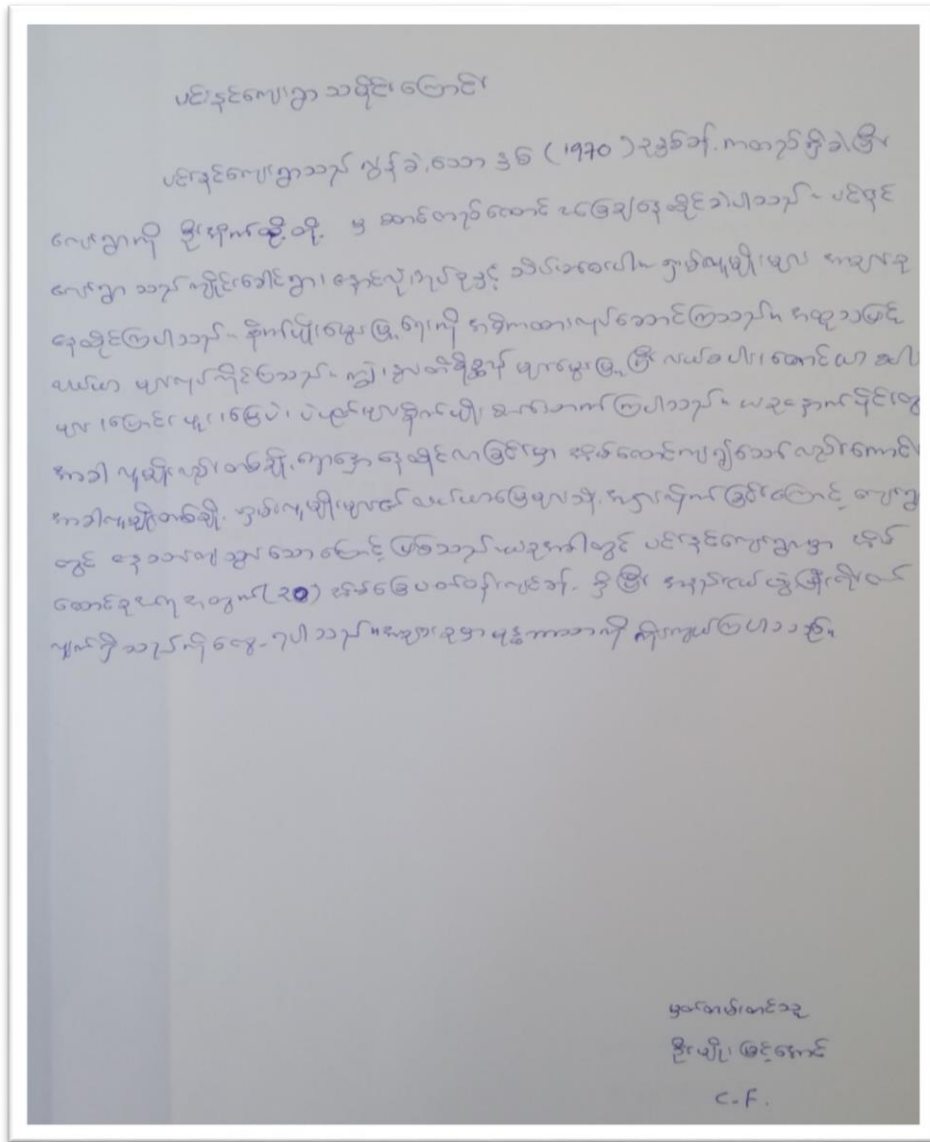 ပင်းနင်ကျေးရွာ သမိုင်းကြောင်း
ပင်းနင်ကျေးရွာသည် လွန်ခဲ့သော ၁၉၆ (1970) ခုနှစ်ခန့်ကတည်ရှိခဲ့ပြီး
ကျေးရွာကို ဦးနောက်ထို့တို့ မှ ဆောင်တစ်ထောင် အခြေချနေထိုင်ခဲ့ပါသည်။ ပင်းနင်
ကျေးရွာ သည် ကျိုင်းခေါင်ရွာ၊ နောင်လုံးအုပ်စုနှင့် သိမ်းခဲပေးပါ။ ရှမ်းလူမျိုးများ အများစု
နေထိုင်ကြပါသည်။ စိုက်ပျိုးမွေးမြူရေးကို အဓိကထားလုပ်ဆောင်ကြသည်။ အထူးသဖြင့်
လယ်ယာ များလုပ်ကိုင်ကြသည်။ ကျွဲ၊ နွားတိရိစ္ဆာန် များမွေးမြူပြီး လယ်စပါး၊ တောင်ယာ စပါး
များ၊ ပြောင်းဖူး၊ မြေပဲ၊ ပဲပုတ်များစိုက်ပျိုး စားသောက်ကြပါသည်။ ယခုနောက်ပိုင်းတွင်
အာခါ လူမျိုးလည်း တစ်ချို့ ရောနှော နေထိုင်လာခြင်းမှာ အိမ်ထောင်ကျ၍သော်လည်းကောင်း
အာခါလူမျိုးတစ်ချို့ ရှမ်းလူမျိုးများ၏ လယ်ယာမြေများသို့ အငှားလိုက်ခြင်းကြောင့် ကျေးရွာ
တွင် နေသားကျသွားသောကြောင့် ဖြစ်သည်။ ယခုအခါတွင် ပင်းနင်ကျေးရွာမှာ အိမ်
ထောင်စုအရေအတွက် (20) အိမ်ခြေပတ်ဝန်းကျင်ခန့် ရှိပြီး အနည်းငယ် ဖွံ့ဖြိုးတိုးတက်
လျက်ရှိသည်ကို တွေ့ရပါသည်။ အများစုမှာ ဗုဒ္ဓဘာသာကို ကိုးကွယ်ကြပါသည်။
မှတ်တမ်းတင်သူ
ဦးမျိုးမြင့်အောင်
C.F.